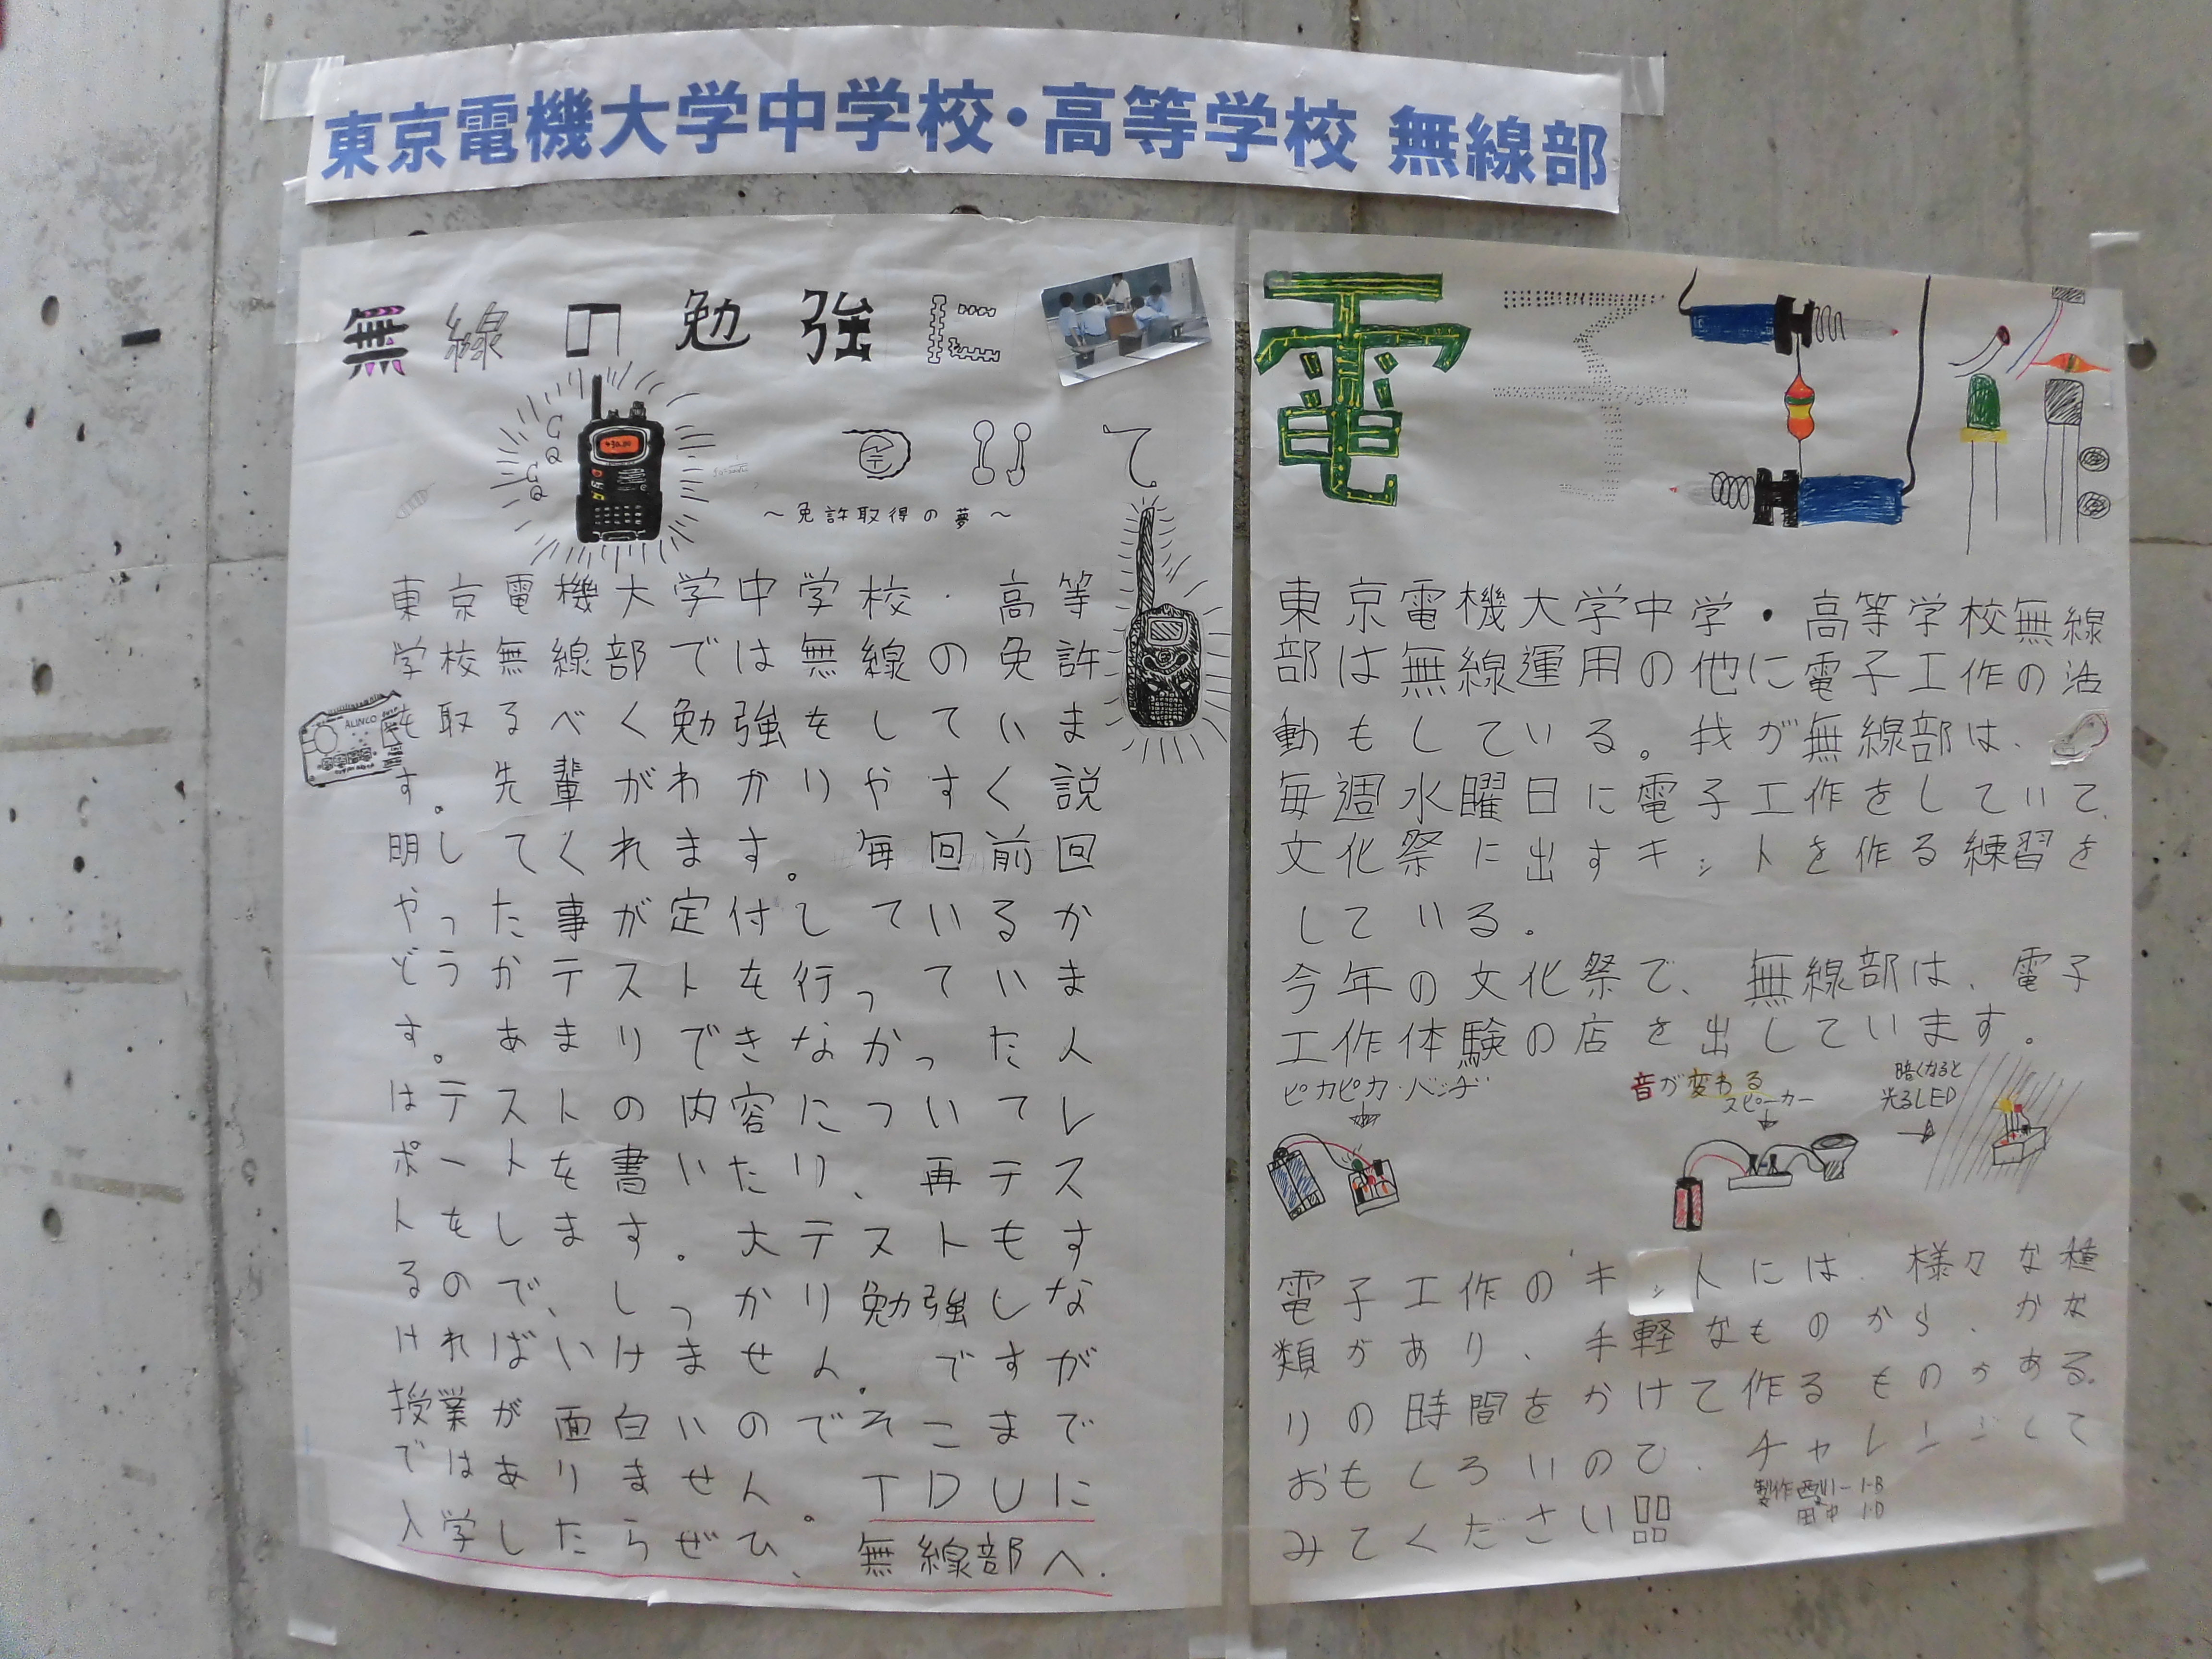 東京電機大学中学校・高等学校 無線部
無線の勉強に
ついて
CQ
CQ
～免許取得の夢～
東京電機大学中学校・高等
学校無線部では無線の免許
を取るべく勉強をしていま
す。先輩がわかりやすく説
明してくれます。毎回前回
やった事が定付しているか
どうかテストを行っていま
す。あまりできなかった人
はテストの内容についてレ
ポートを書いたり、再テス
トをします。大テストもす
るので、しっかり勉強しな
ければいけません。ですが
授業が面白いのでそこまで
ではありません。TDUに
入学したらぜひ、無線部へ.
ALINCO
電子
東京電機大学中学・高等学校無線
部は無線運用の他に電子工作の活
動もしている。我が無線部は、
毎週水曜日に電子工作をしていて、
文化祭に出すキットを作る練習を
している.
今年の文化祭で、無線部は、電子
工作体験の店を出しています。
ピカピカ・バッヂ
音が変わる
スピーカー
暗くなると
光るLED
電子工作のキットには、様々な種
類があり、手軽なものから、かな
りの時間をかけて作るものがある。
おもしろいので、チャレンジして
みてください!!
製作 西川 1-B
田中 1-D